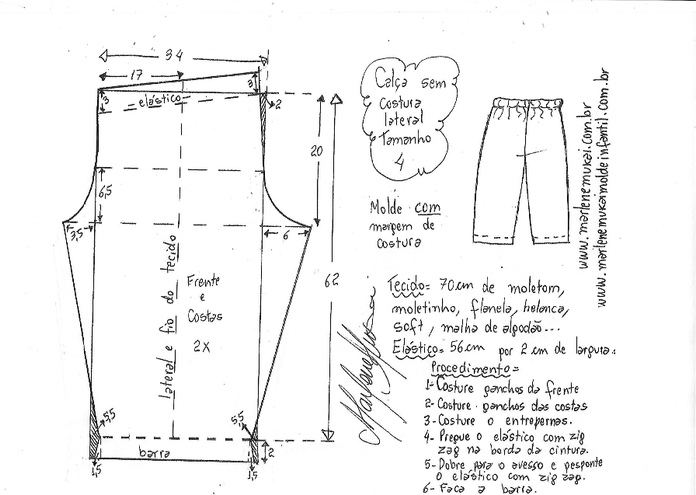 34
17
3
3
elástico
2
20
6,5
3,5
6
62
lateral e fio do tecido
Frente
e
Costas
2X
5,5
5,5
barra
1,5
1,5
2
Calça sem
costura
lateral
Tamanho
4
Molde com
margem de
costura
www.marlenemukai.com.br
www.marlenemukaimoldeinfantil.com.br
Tecido= 70cm de moletom,
moletinho, flanela, helanca,
soft, malha de algodão...
Elástico= 56cm por 2 cm de largura.
Procedimento=
1- Costure ganchos da frente
2- Costure ganchos das costas
3- Costure o entrepernas.
4- Pregue o elástico com zig
zag na borda da cintura.
5- Dobre para o avesso e pesponte
o elástico com zig zag.
6- Faça a barra.